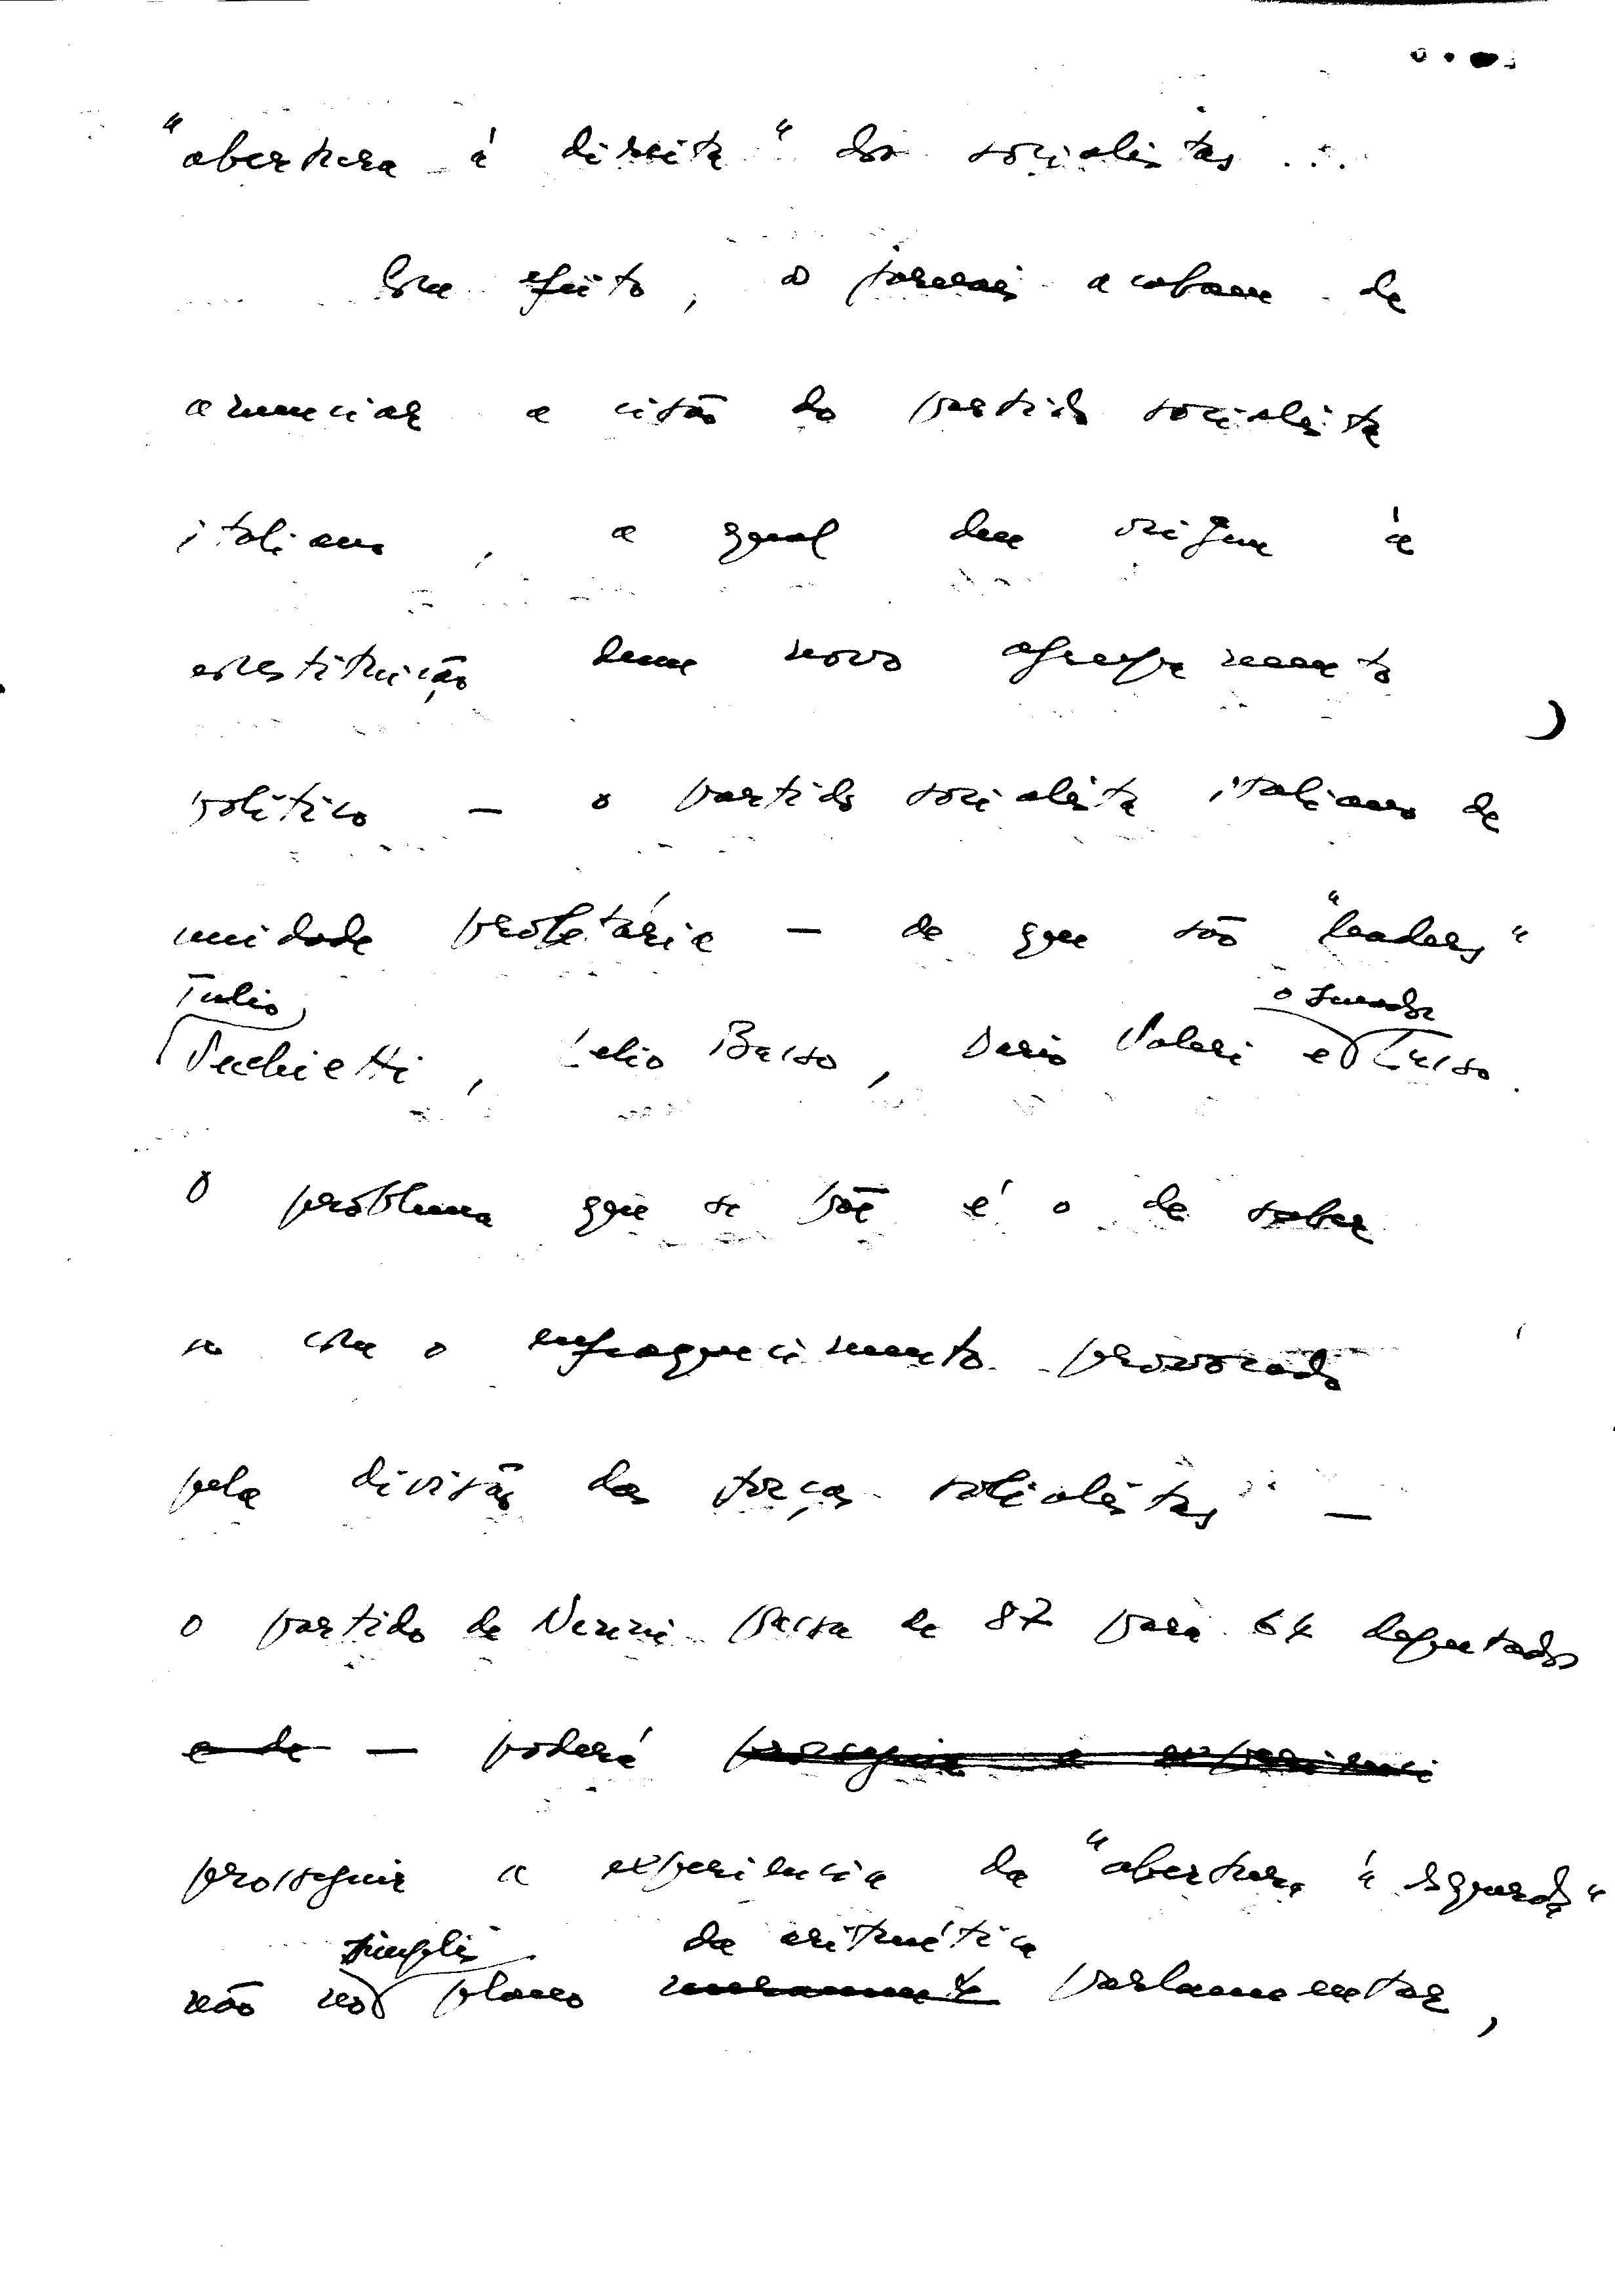 "abertura à direita" dos socialistas ...
Com efeito, os jornais acabam de
anunciar a cisão do partido socialista
italiano, a qual deu origem à
constituição dum novo agrupamento
político — o partido socialista italiano de
unidade proletária — de que são "leaders"
Tulio o Lussu
Vechietti, Lelio Basso, Dario Valori e
O problema que se põe é o de saber
se com o enfraquecimento provocado
pela divisão das forças socialistas —
o partido de Nenni passa de 87 para 64 deputados
e de — poderá prosseguir a experiênci
prosseguir a experiência da "abertura à esquerda"
simples da aritmética
não no plano meramente parlamentar,